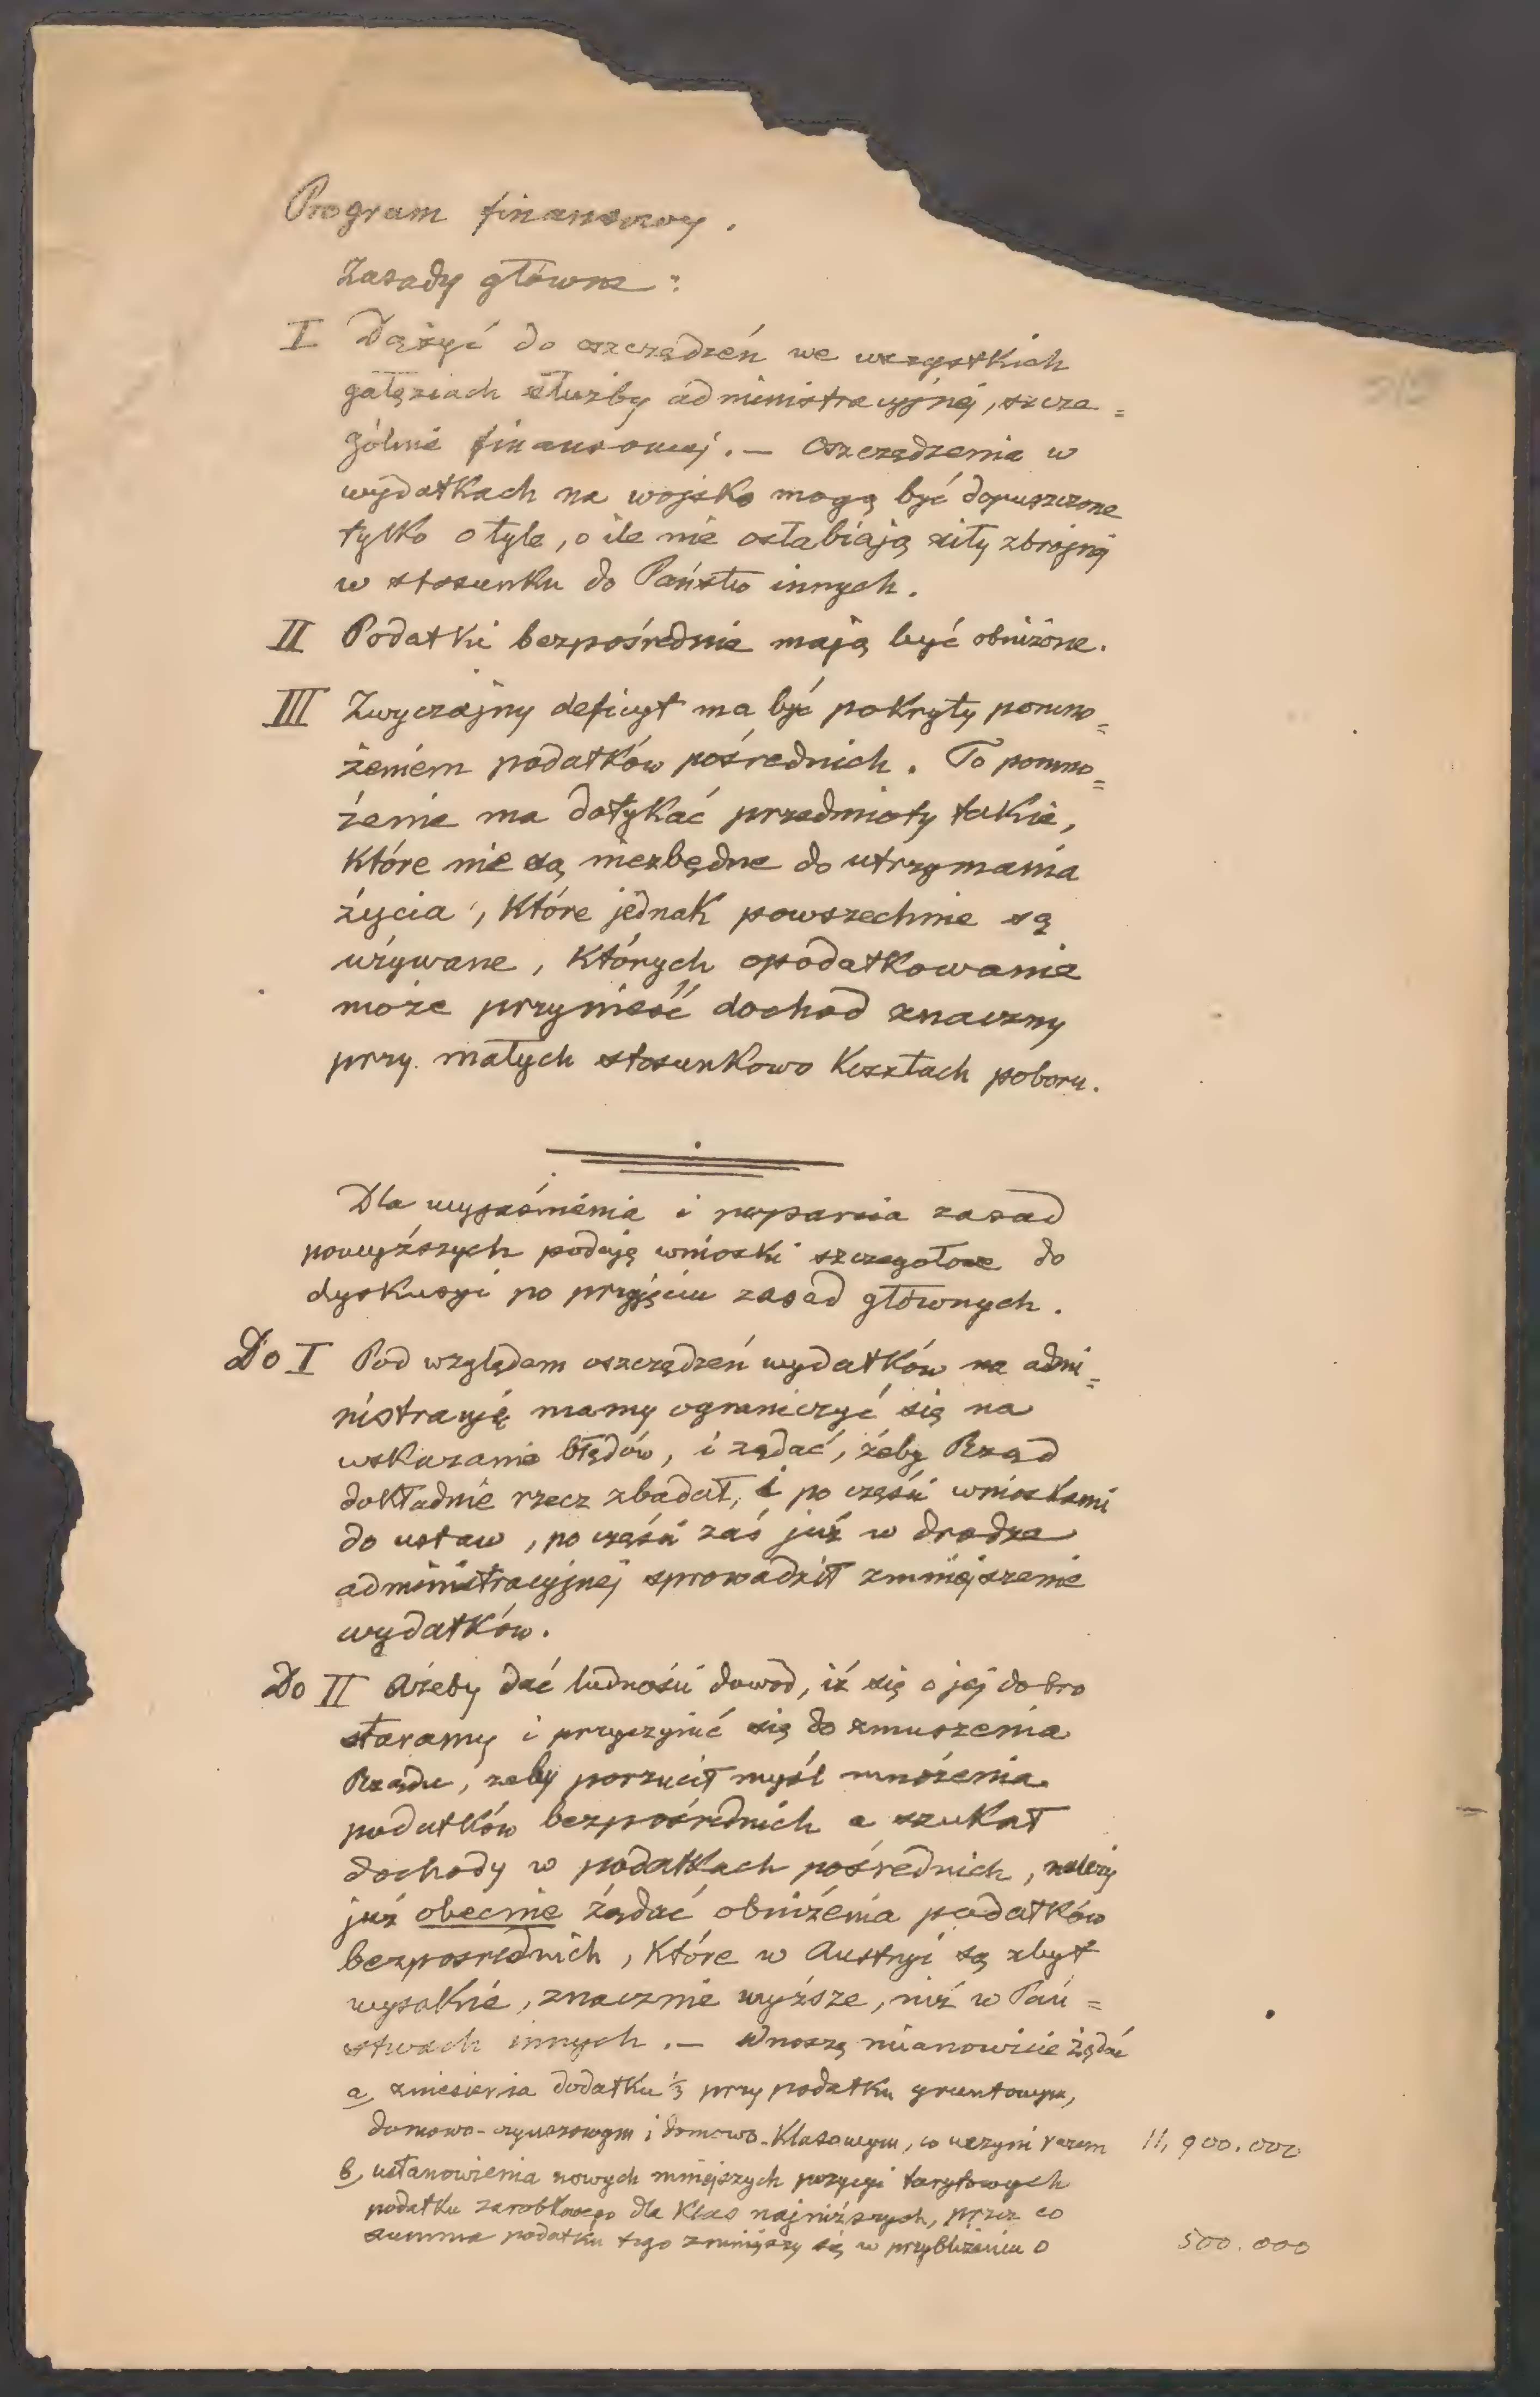 Program finansowy.
Zasady główne:
I Dążyć do oszczędzeń we wszystkich
gałęziach służby administracyjnej, szcze=
gólnie finansowej. — Oszczędzenia w
wydatkach na wojsko mogą być dopuszczone
tylko o tyle, o ile nie osłabiają siły zbrojnej
w stosunku do Państw innych.
II Podatki bezpośrednie mają być obniżone.
III Zwyczajny deficyt ma być pokryty pomno=
żeniem podatków pośrednich. To pomno=
żenie ma dotykać przedmioty takie,
które nie są niezbędne do utrzymania
życia, które jednak powszechnie są
używane, których opodatkowanie
może przynieść dochód znaczny
przy małych stosunkowo kosztach poboru.
Dla wyjaśnienia i poparcia zasad
powyższych podaję wnioski szczegołowe do
dyskusyi po przyjęciu zasad głównych.
Do I Pod względem oszczędzeń wydatków na admi=
nistracyję mamy ograniczyć się na
wskazanie błędów, i żądać, żeby Rząd
dokładnie rzecz zbadał, i po części wnioskami
do ustaw, po części zaś już w drodze
administracyjnej sprowadził zmniejszenie
wydatków.
Do II Ażeby dać ludności dowód, iż się o jej dobro
staramy i przyczynić się do zmuszenia
Rządu, żeby porzucił myśl mnożenia
podatków bezpośrednich a szukał
dochody w podatkach pośrednich, należy
już obecnie żądać obniżenia podatków
bezpośrednich, które w Austryi są zbyt
wysokie, znacznie wyższe, niż w Pań=
stwach innych. — Wnoszę mianowicie żądać
a, zniesienia dodatku ⅓ przy podatku gruntowym,
domowo-czynszowym i domowo-klasowym, co uczyni razem 11,900.000
b, ustanowienia nowych mniejszych pozycyi taryfowych
podatku zarobkowego dla klas najniższych, przez co
summa podatku tego zmniejszy się w przybliżeniu o 500.000